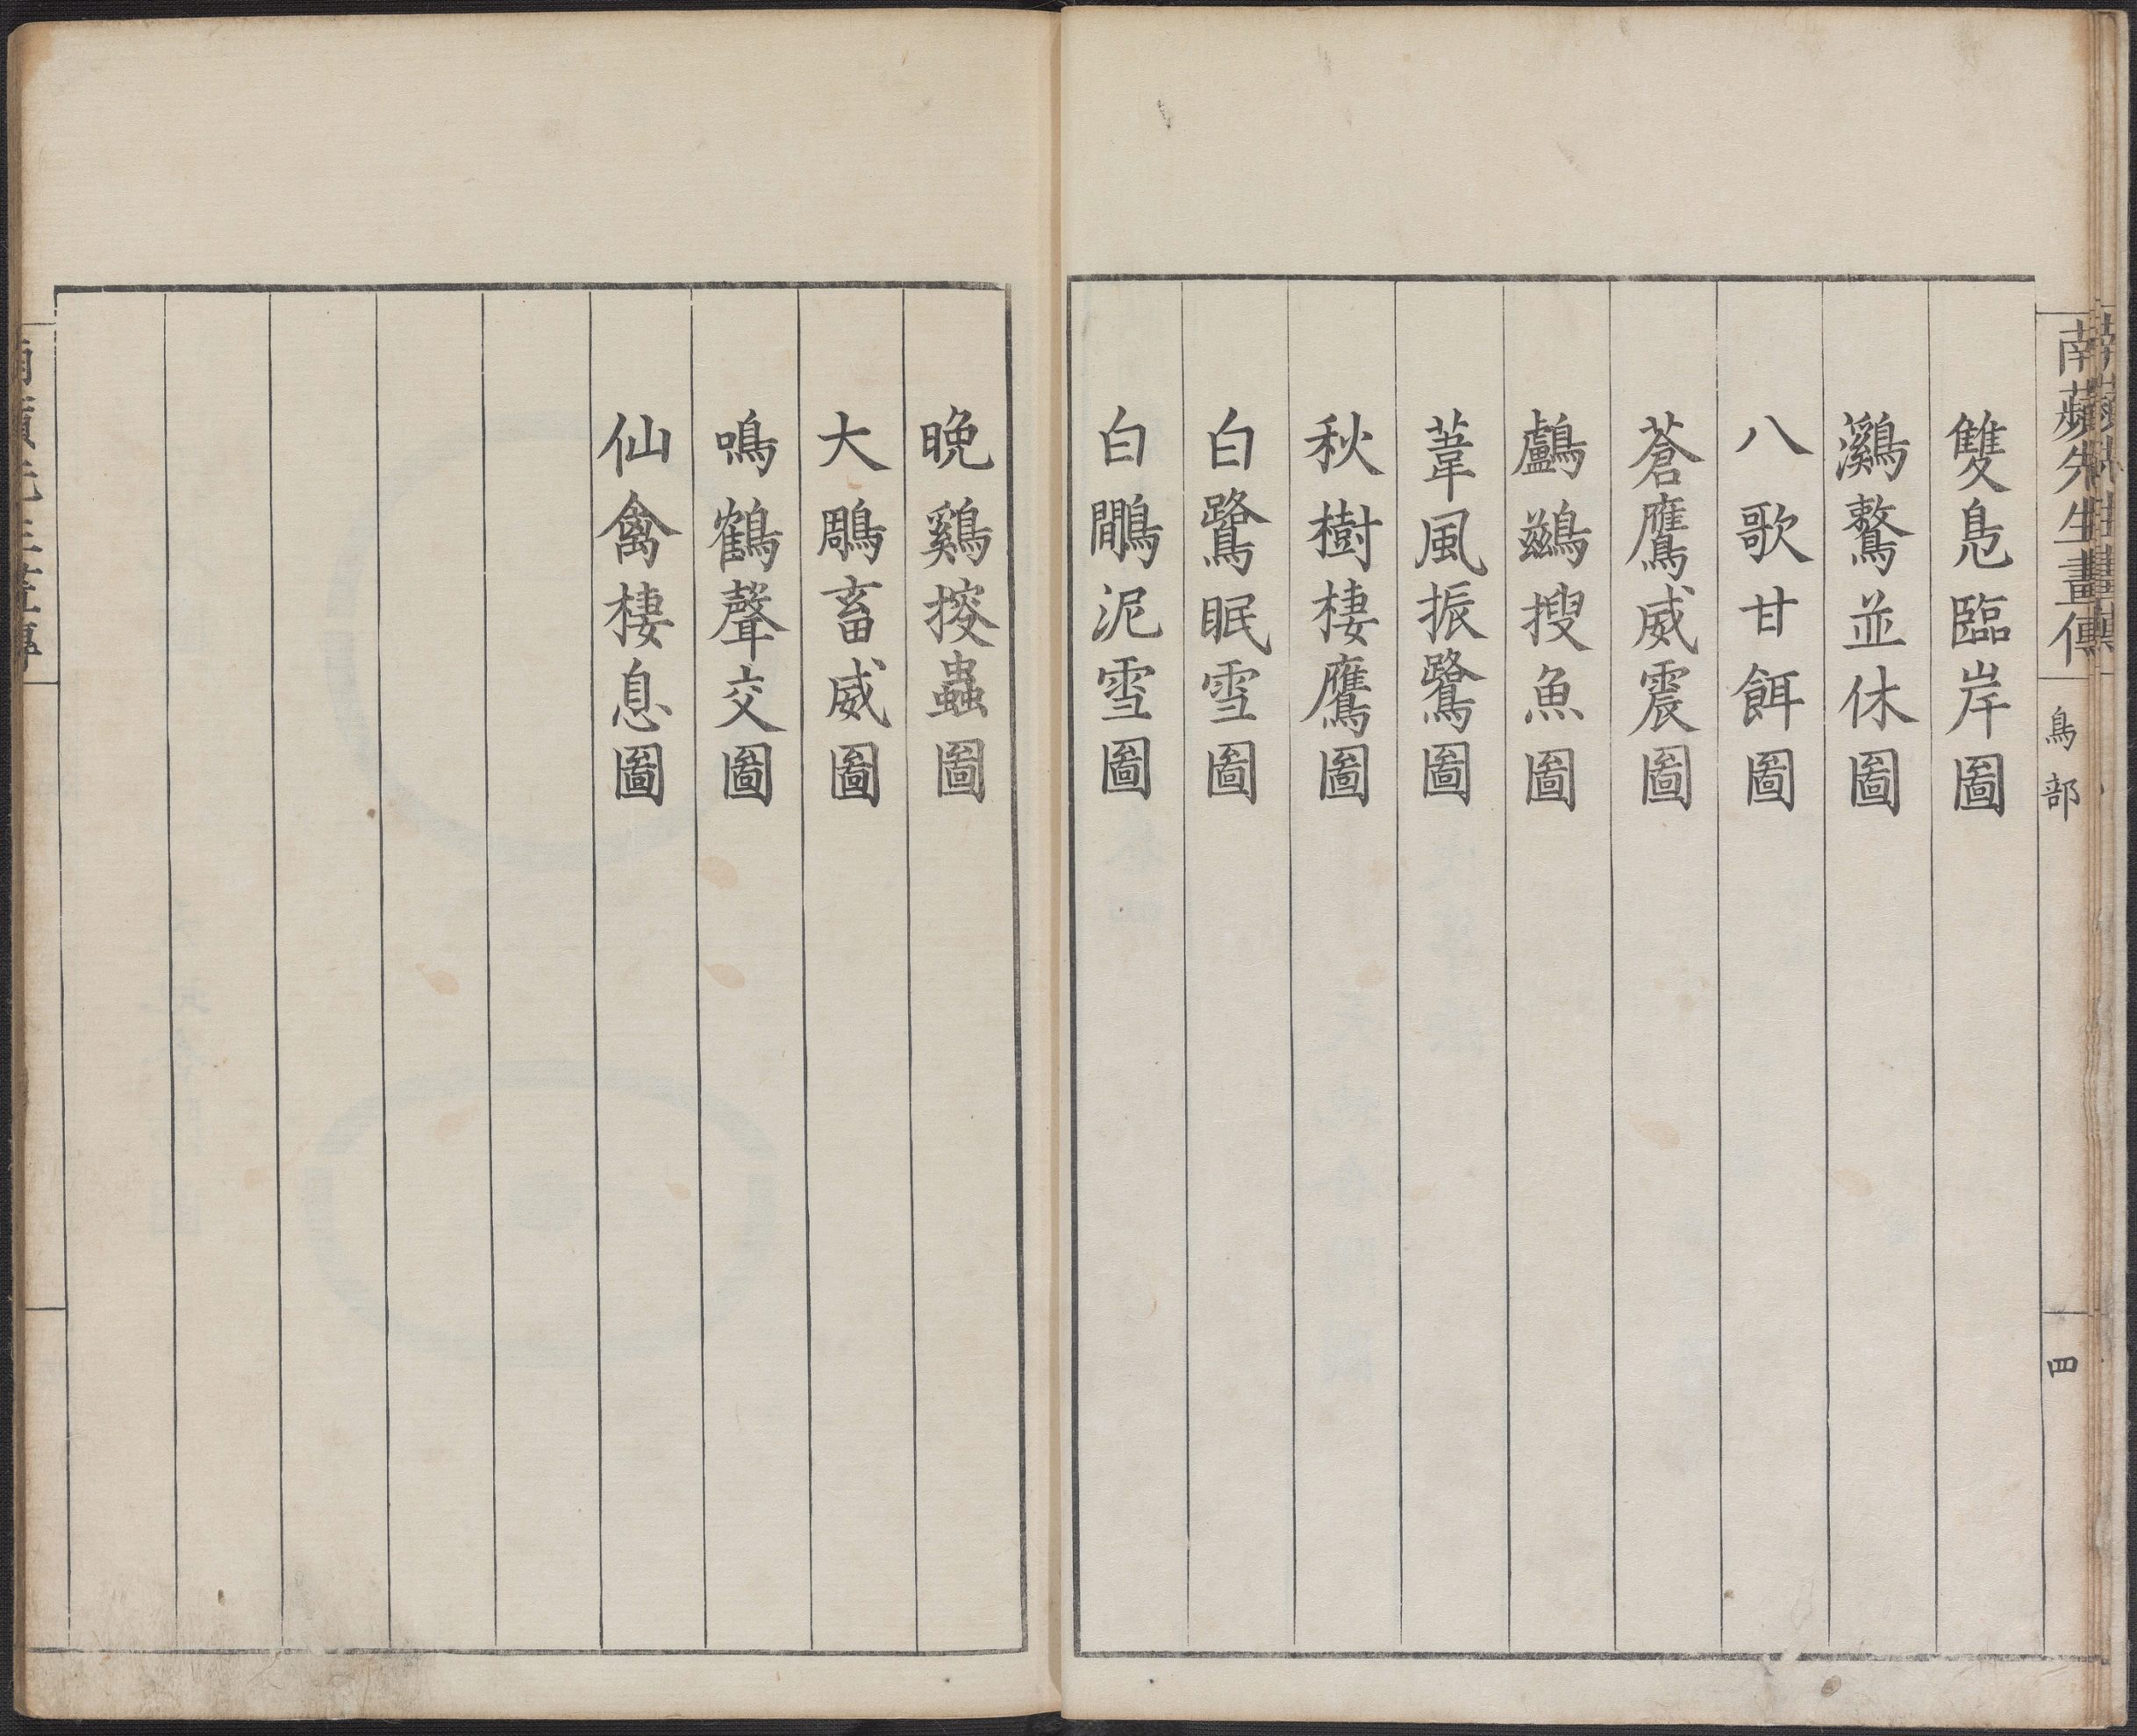 南蘋先生畫傳
鳥部
四
雙鳧臨岸圖
鸂鷘並休圖
八歌甘餌圖
蒼鷹威震圖
鸕鷀搜魚圖
葦風振鷺圖
秋樹棲鷹圖
白鷺眠雪圖
白鷴泥雪圖
晚鷄捘蟲圖
大鵰畜威圖
鳴鶴聲交圖
仙禽棲息圖